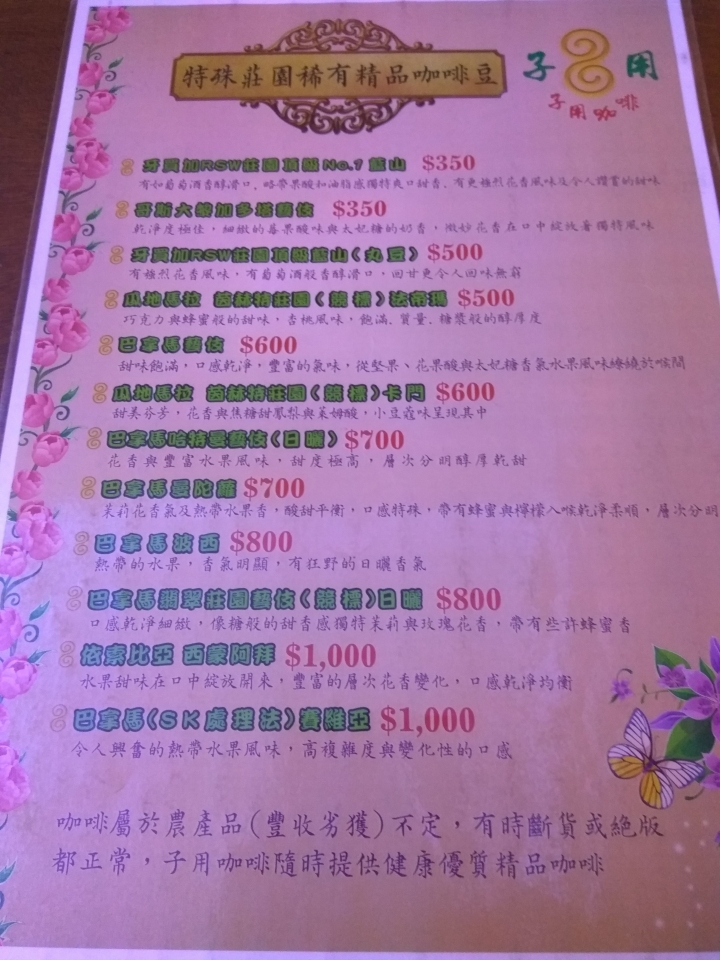 特殊莊園稀有精品咖啡豆
子 用
子用咖啡
牙買加RSW莊園頂級No.1 藍山 $350
有如葡萄酒香醇滑口、略帶果酸和油脂感獨特爽口甜香、有更強烈花香風味及令人讚賞的甜味
哥斯大黎加多塔藝伎 $350
乾淨度極佳，細緻的莓果酸味與太妃糖的奶香，微妙花香在口中綻放著獨特風味
牙買加RSW莊園頂級藍山(丸豆) $500
有強烈花香風味，有葡萄酒般香醇滑口，回甘更令人回味無窮
瓜地馬拉 茵赫特莊園(競標)法蒂瑪 $500
巧克力與蜂蜜般的甜味，杏桃風味，飽滿、質量、糖漿般的醇厚度
巴拿馬藝伎 $600
甜味飽滿，口感乾淨，豐富的氣味，從堅果、花果酸與太妃糖香氣水果風味繚繞於喉間
瓜地馬拉 茵赫特莊園(競標)卡門 $600
甜美芬芳，花香與焦糖甜鳳梨與萊姆酸，小豆蔻味呈現其中
巴拿馬哈特曼藝伎(日曬) $700
花香與豐富水果風味，甜度極高，層次分明醇厚乾甜
巴拿馬曼陀蘿 $700
茉莉花香氣及熱帶水果香，酸甜平衡，口感特殊，帶有蜂蜜與檸檬入喉乾淨柔順，層次分明
巴拿馬波西 $800
熱帶的水果，香氣明顯，有狂野的日曬香氣
巴拿馬翡翠莊園藝伎(競標)日曬 $800
口感乾淨細緻，像糖般的甜香感獨特茉莉與玫瑰花香，帶有些許蜂蜜香
依索比亞 西蒙阿拜 $1,000
水果甜味在口中綻放開來，豐富的層次花香變化，口感乾淨均衡
巴拿馬(SK處理法)賽維亞 $1,000
令人興奮的熱帶水果風味，高複雜度與變化性的口感
咖啡屬於農產品(豐收劣獲)不定，有時斷貨或絕版
都正常，子用咖啡隨時提供健康優質精品咖啡